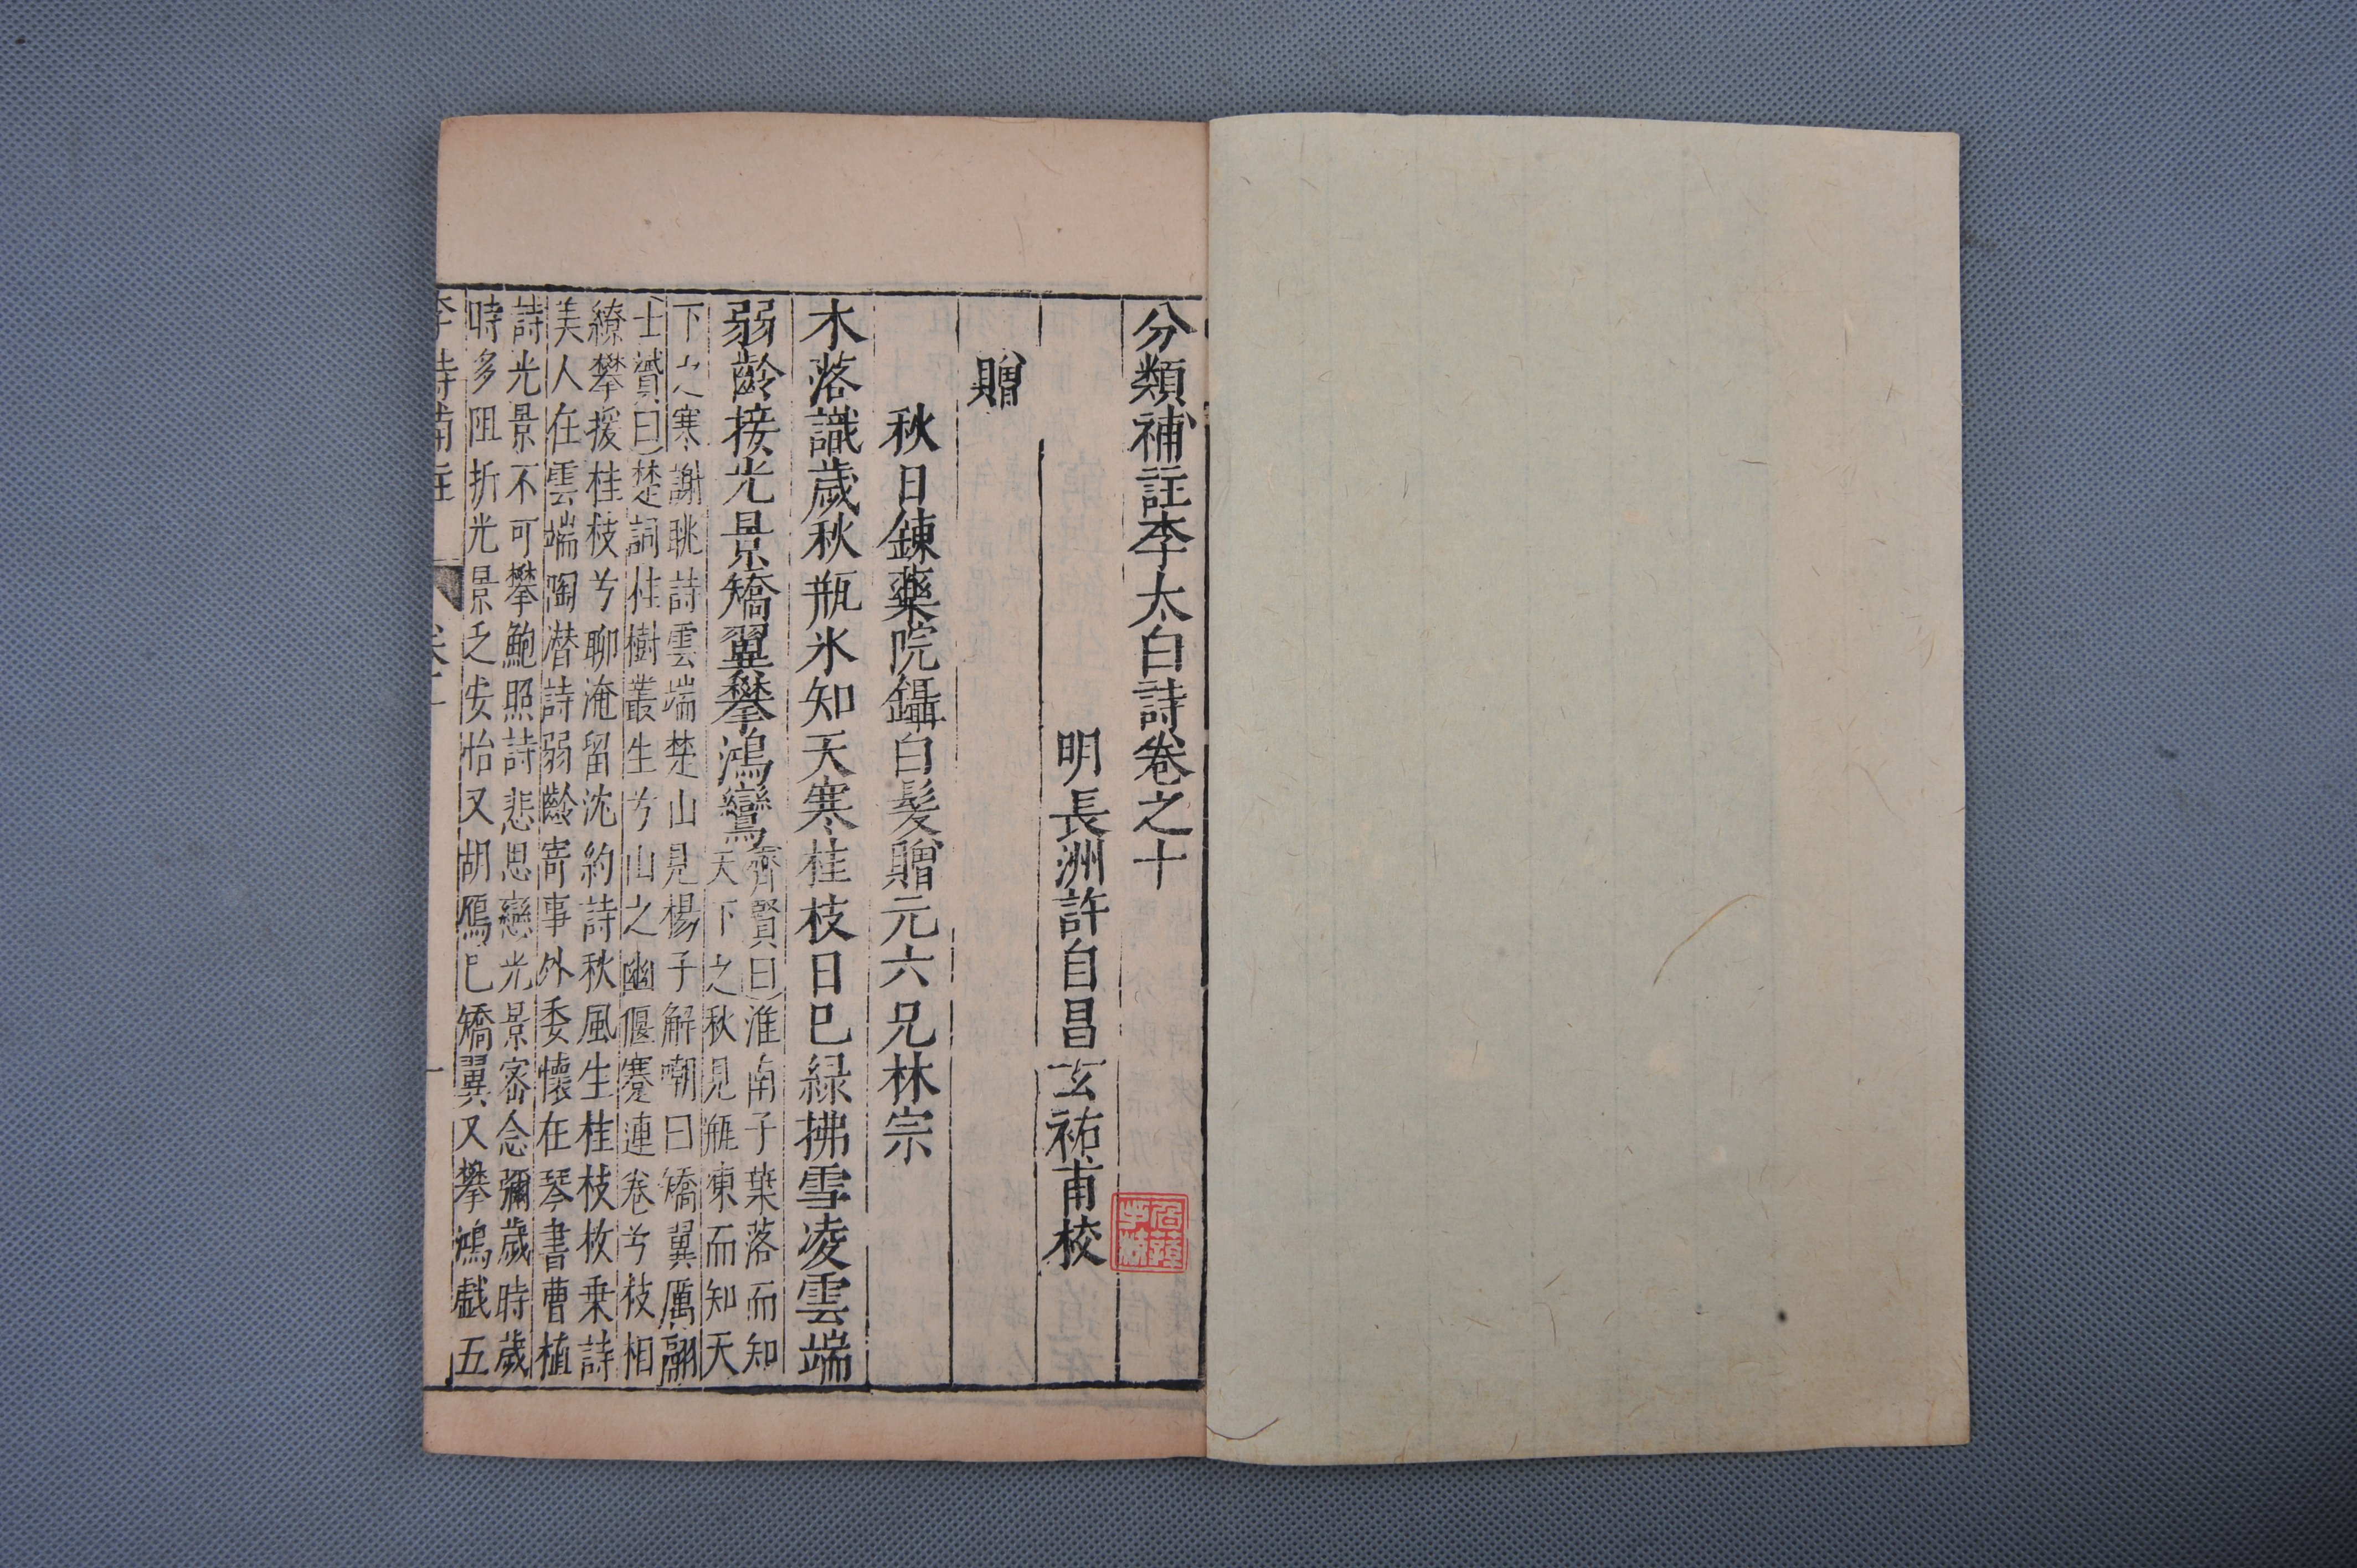 分類補註李太白詩卷之十
明長洲許自昌玄祐甫校
贈
秋日鍊藥院鑷白髮贈元六兄林宗
木落識歲秋瓶氷知天寒桂枝日已緑拂雪凌雲端
弱齡接光景矯翼攀鴻鸞
齊賢曰淮南子葉落而知
天下之秋見瓶凍而知天
下之寒謝眺詩雲端楚山見楊子解嘲曰矯翼厲翮
士贇曰楚詞桂樹叢生兮山之幽偃蹇連卷兮枝相
繚攀援桂枝兮聊淹留沈約詩秋風生桂枝枚乗詩
美人在雲端陶潜詩弱齡寄事外委懷在琴書曹植
詩光景不可攀鮑照詩悲思戀光景密念彌歲時歲
時多阻折光景乏安怡又胡鴈已矯翼又攀鴻戱五
李詩補註